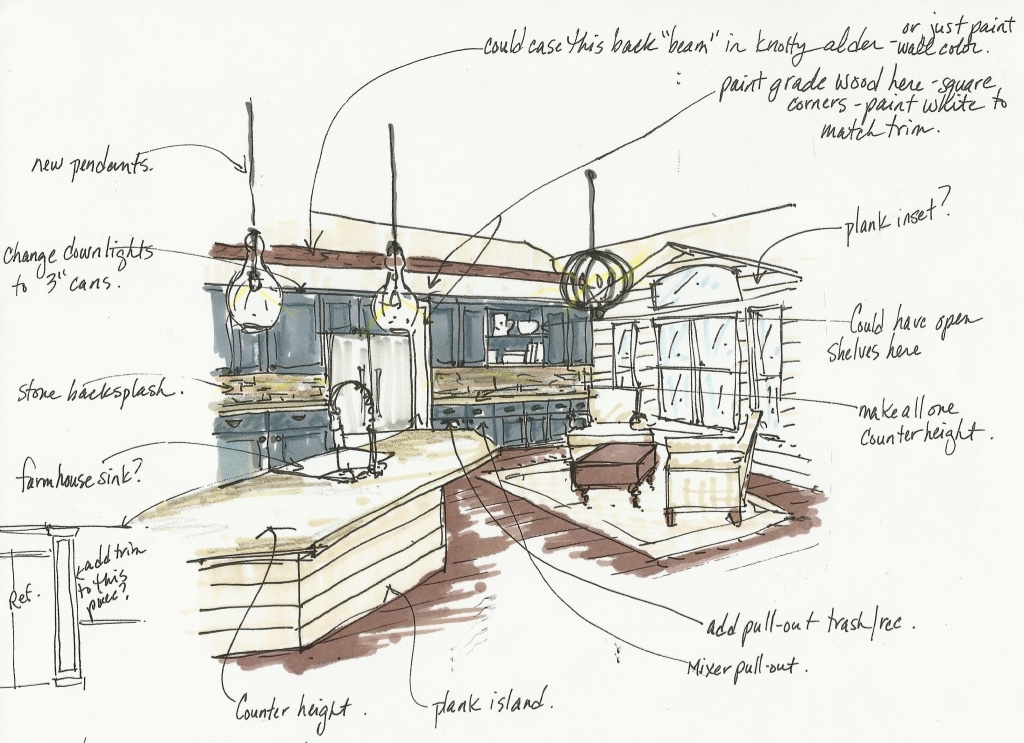 could case this back "beam" in knotty alder - or just paint
wall color.
paint grade wood here - square
corners - paint white to
match trim.
new pendants.
change downlights
to 3" cans.
plank inset?
Could have open
shelves here
stone backsplash.
make all one
counter height.
farmhouse sink?
Ref.
add trim
to this
piece?
add pull-out trash/rec.
Mixer pull-out.
Counter height.
plank island.